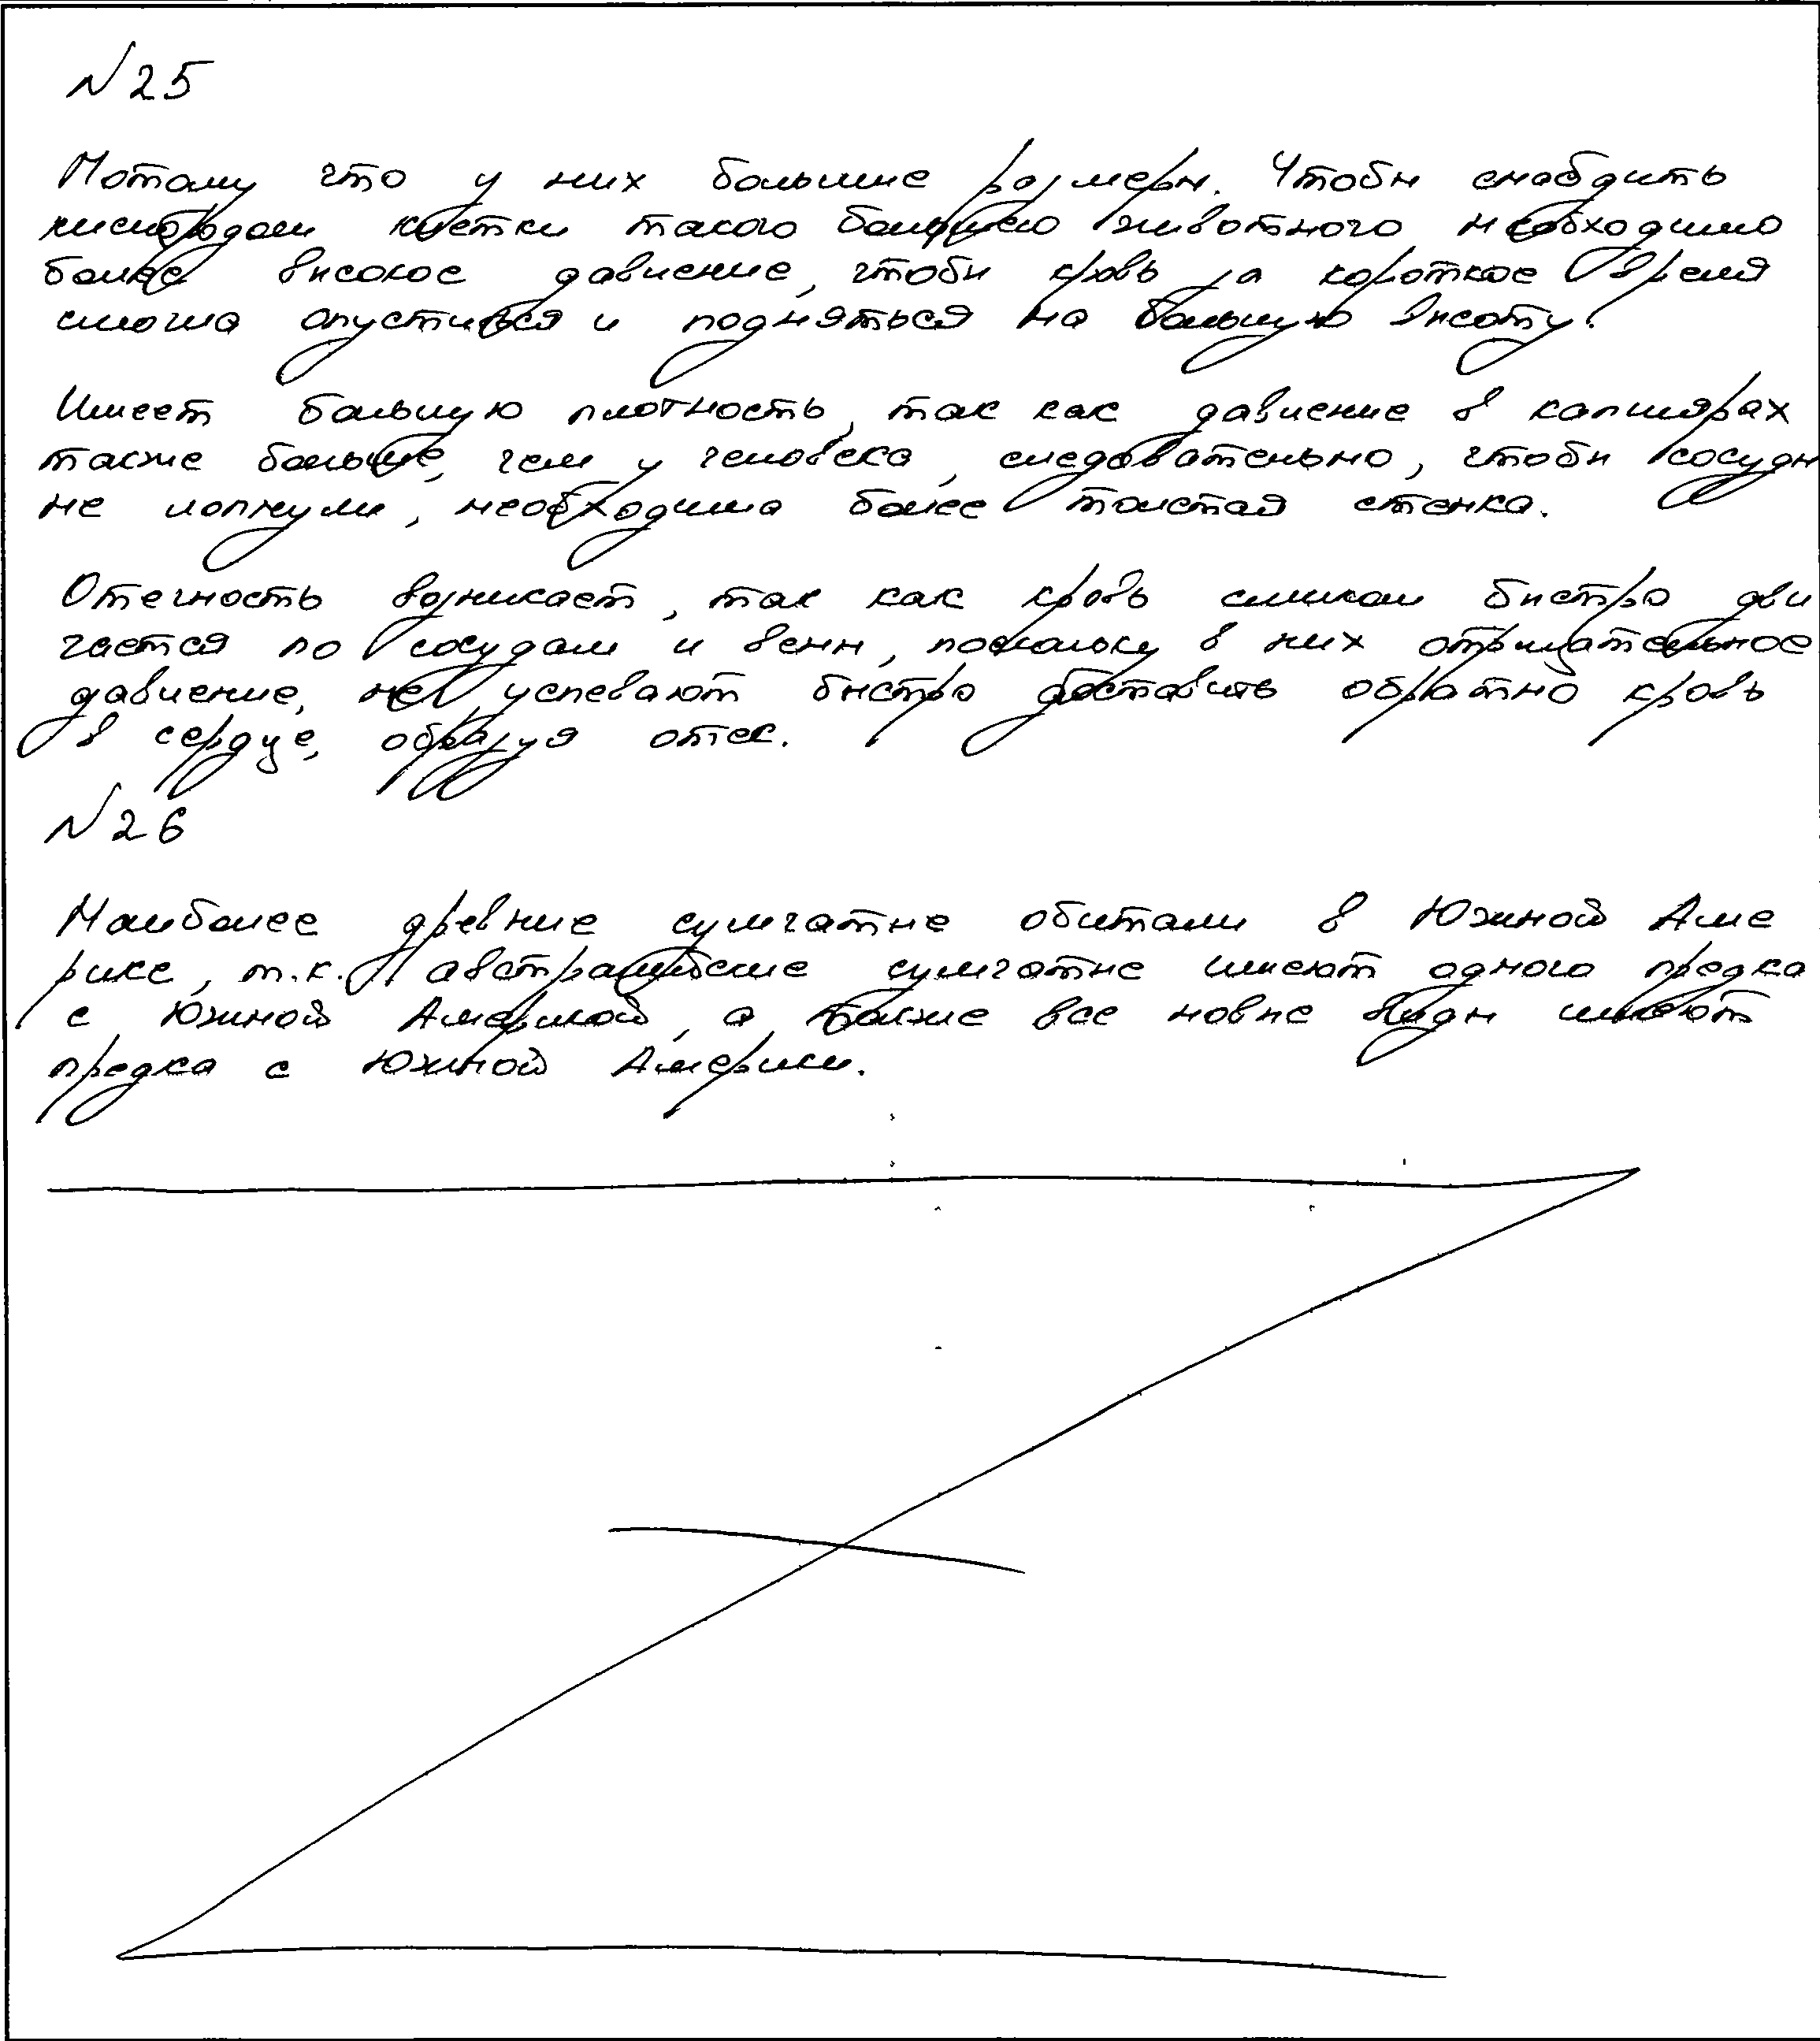 №25
Потому что у них большие размеры. Чтобы снабдить
кислородом клетки такого большого животного необходимо
более высокое давление, чтобы кровь за короткое время
смогла опуститься и подняться на большую высоту.
Имеет большую плотность, так как давление в капилярах
также больше, чем у человека, следовательно, чтобы сосуды
не лопнули, необходима более толстая стенка.
Отечность возникает, так как кровь слишком быстро дви
гается по сосудам и вены, поскольку в них отрицательное
давление, не успевают быстро доставить обратно кровь
в сердце, образуя отек.
№26
Наиболее древние сумчатые обитали в Южной Аме
рике, т.к. австралийские сумчатые имеют одного предка
с Южной Америкой, а также все новые виды имеют
предка с Южной Америки.